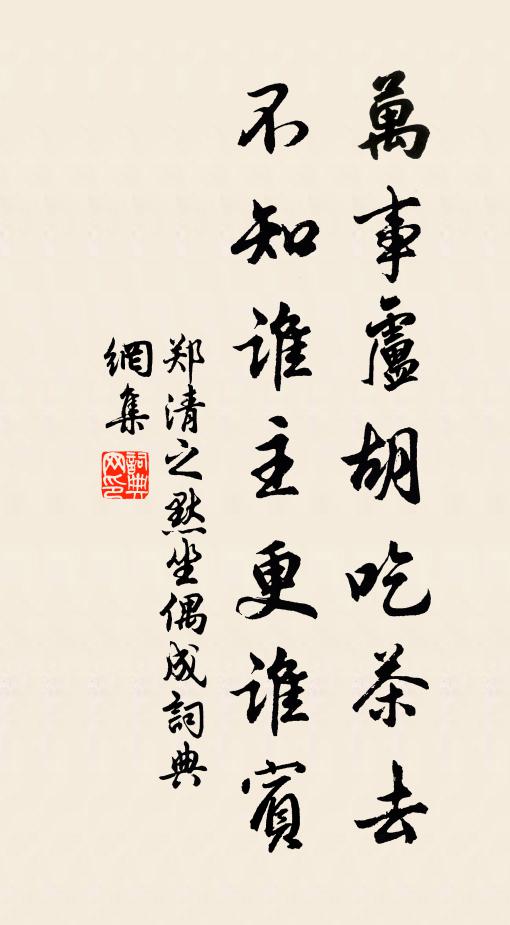 萬事盧胡吃茶去
不知誰主更誰賓
郑清之默坐偶成詞典
網集
詞典网印